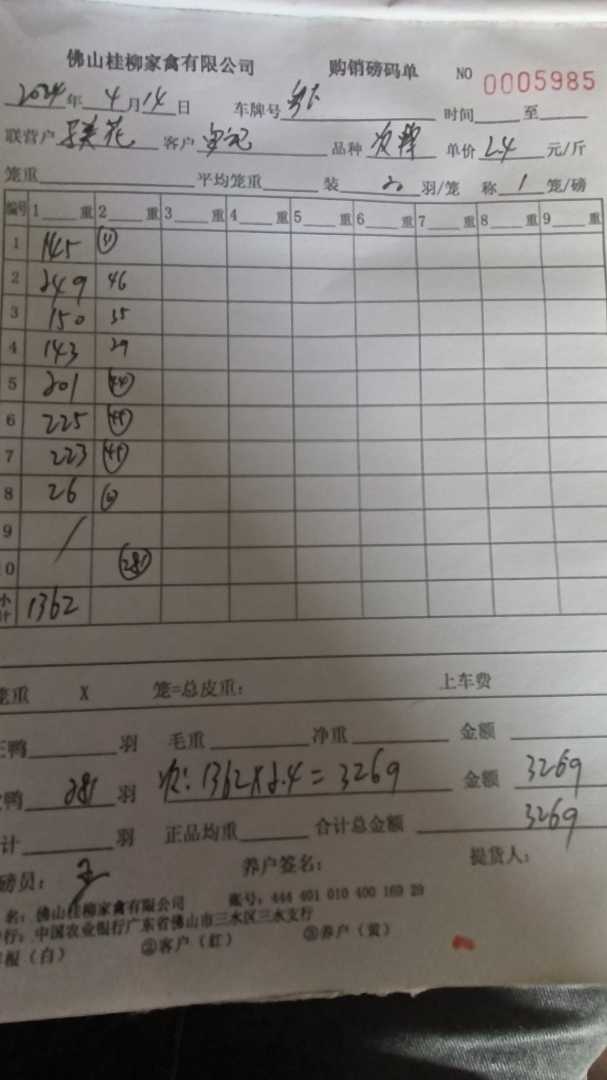 佛山桂柳家禽有限公司 购销磅码单 NO 0005985
2024年 4月14日 车牌号 时间 至
联营户 客户 品种 次鸭 单价 2.4 元/斤
笼重 平均笼重 装 20 羽/笼 称 1 笼/磅
编号 1 重 2 重 3 重 4 重 5 重 6 重 7 重 8 重 9
1 145
2 249 46
3 150 35
4 143 29
5 201
6 225
7 223
8 26
9 /
0 281
小计 1362
笼重 X 笼=总皮重： 上车费
鸭 羽 毛重 净重 金额
鸭 281 羽 次：1362×2.4=3269 金额 3269
计 羽 正品均重 合计总金额 3269
磅员： 养户签名： 提货人：
名：佛山桂柳家禽有限公司 账号：444 401 010 400 169 29
行：中国农业银行广东省佛山市三水区三水支行
（白） ②客户（红） ③养户（黄）